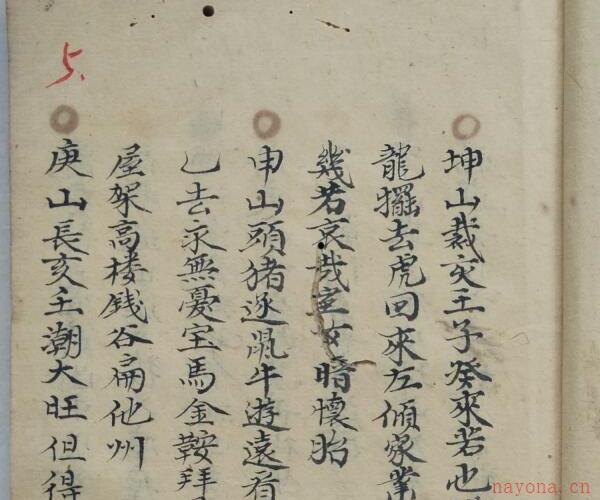 坤山裁亥壬子癸來若也
龍擺去虎回來左傾家業
幾若哀哉室女暗懷胎
申山頭猪逐鼠牛遊遠看
乙去永無憂宝馬金鞍拜
屋架高楼銭谷扁他州
庚山長亥壬潮大旺但得
5.
nayona.cn